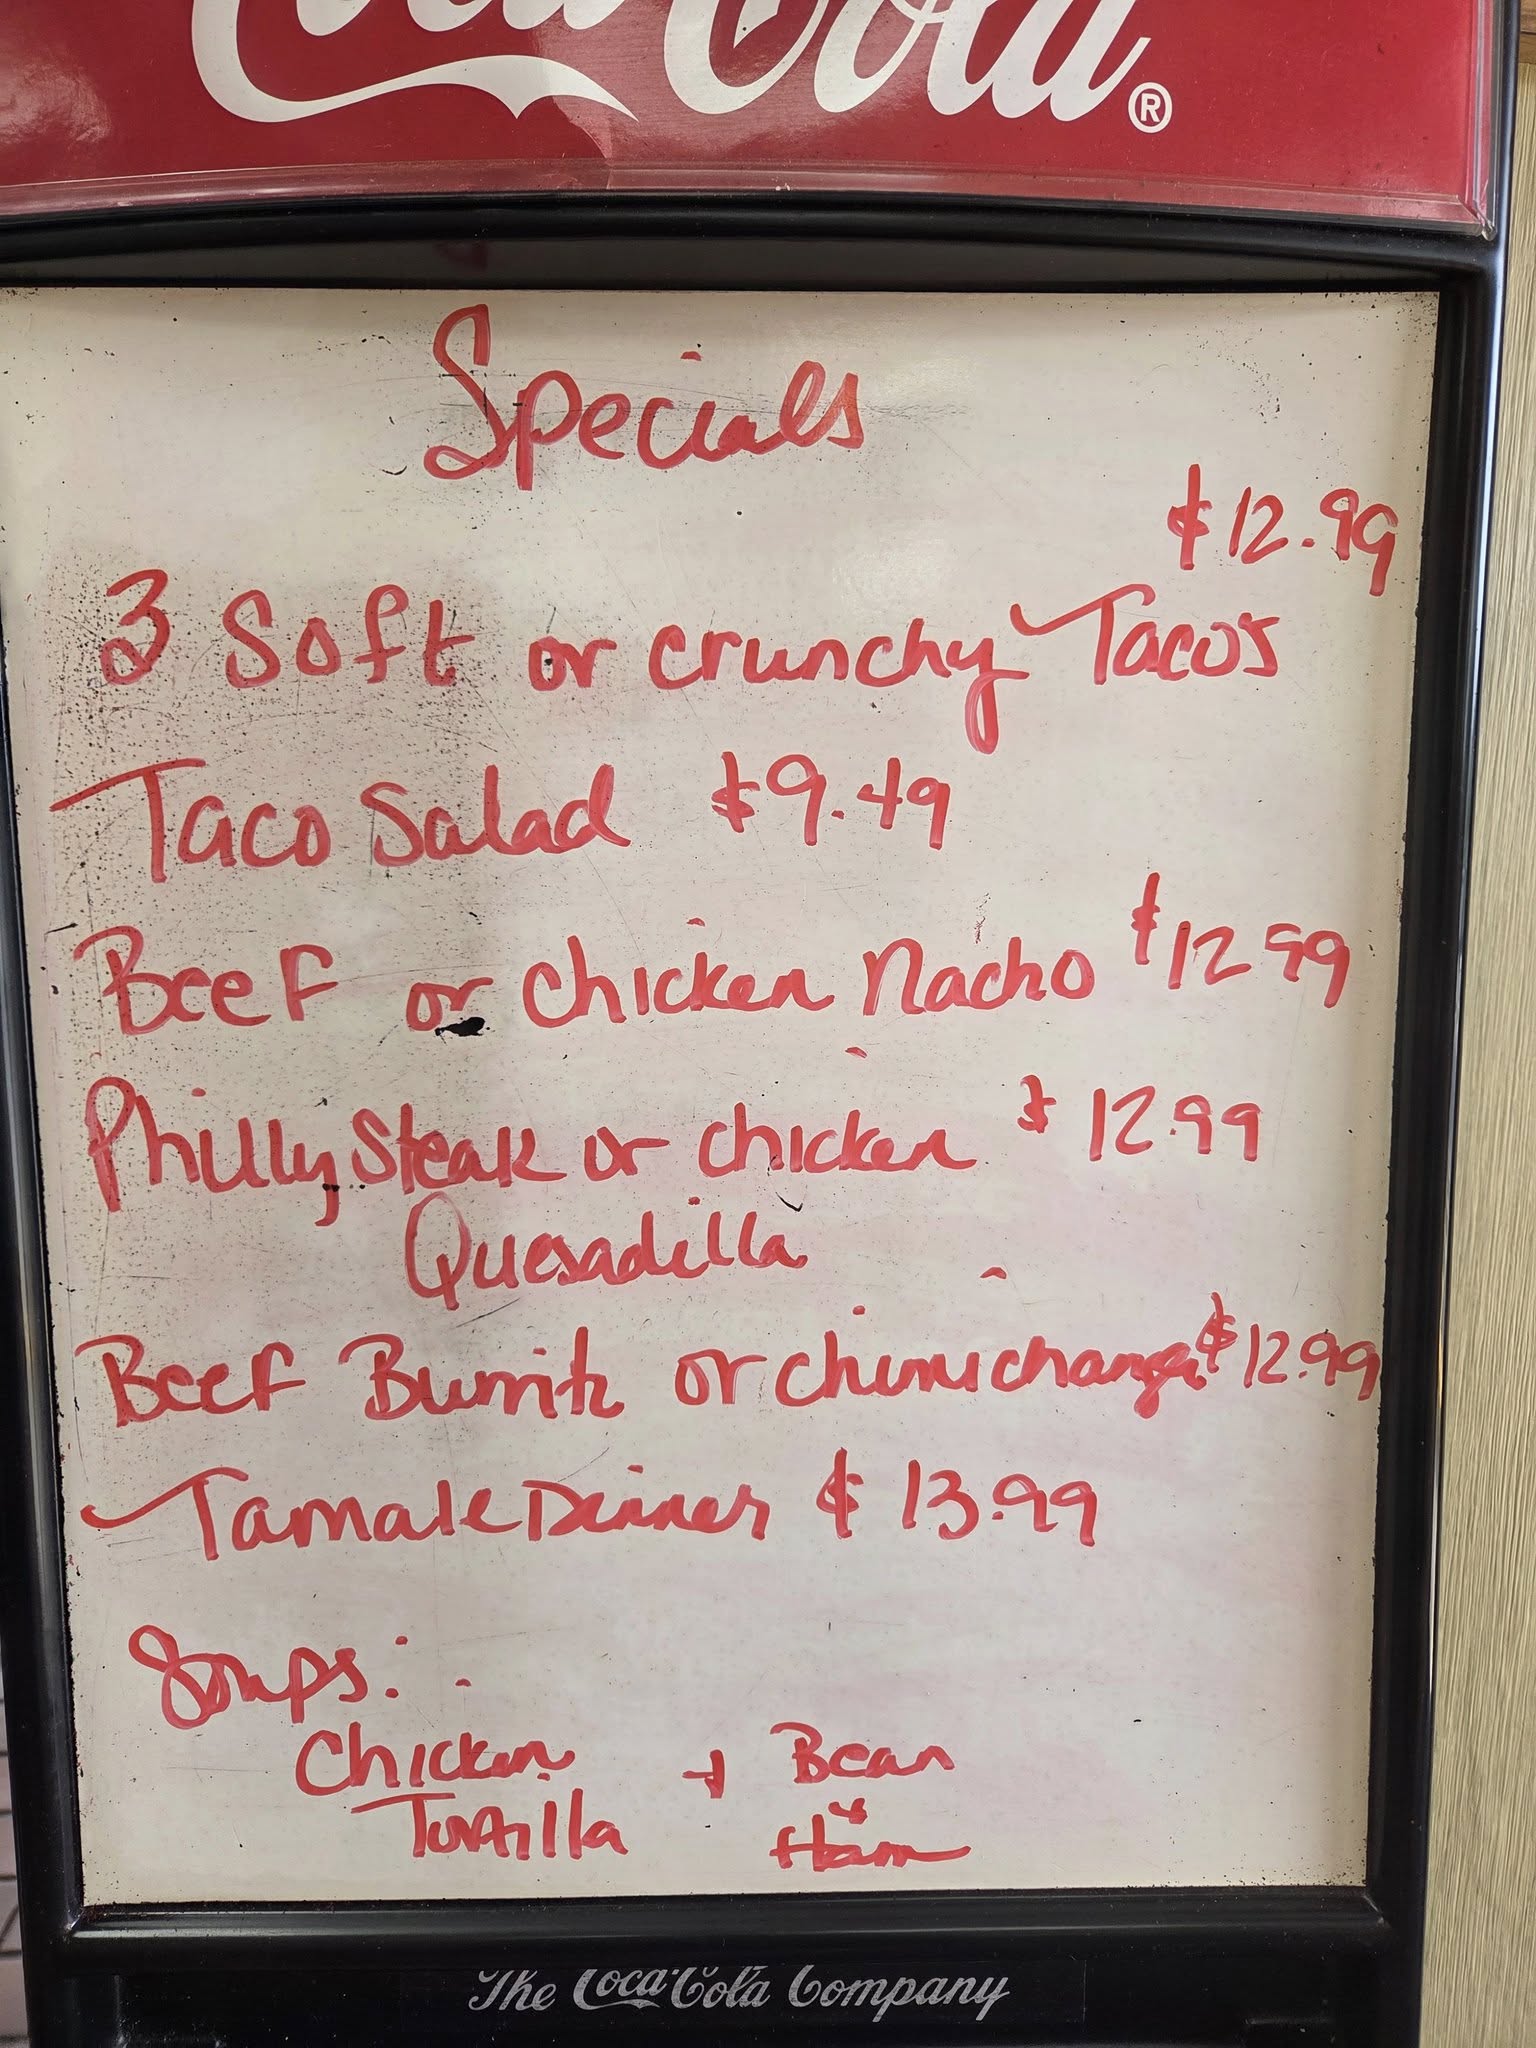 Coca-Cola®
Specials
$12.99
3 Soft or crunchy Tacos
Taco Salad $9.49
Beef or chicken Nacho $12.99
Philly Steak or chicken $12.99
Quesadilla
Beef Burrito or chimichanga $12.99
Tamale Dinner $13.99
Soups:
Chicken + Bean
Tortilla & Ham
The Coca-Cola Company